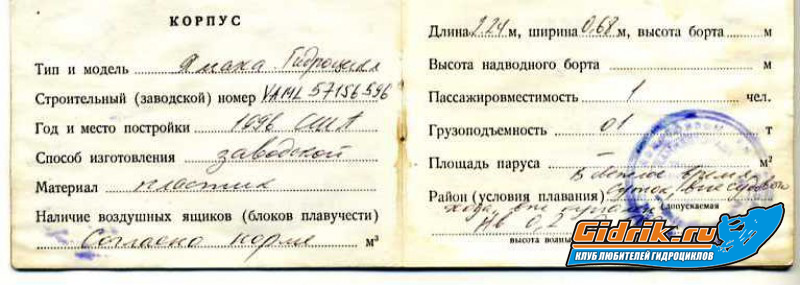 КОРПУС
Тип и модель Ямаха Гидроцикл
Строительный (заводской) номер YAML57156596
Год и место постройки 1996 США
Способ изготовления заводской
Материал пластик
Наличие воздушных ящиков (блоков плавучести)
Согласно норме м³
Длина 2.24 м, ширина 0,68 м, высота борта м
Высота надводного борта м
Пассажировместимость 1 чел.
Грузоподъемность 01 т
Площадь паруса — м²
В светлое время
Район (условия плавания) суток, вне судового
хода, вне
(допускаемая
0,2
высота волны
Gidrik.ru
КЛУБ ЛЮБИТЕЛЕЙ ГИДРОЦИКЛОВ